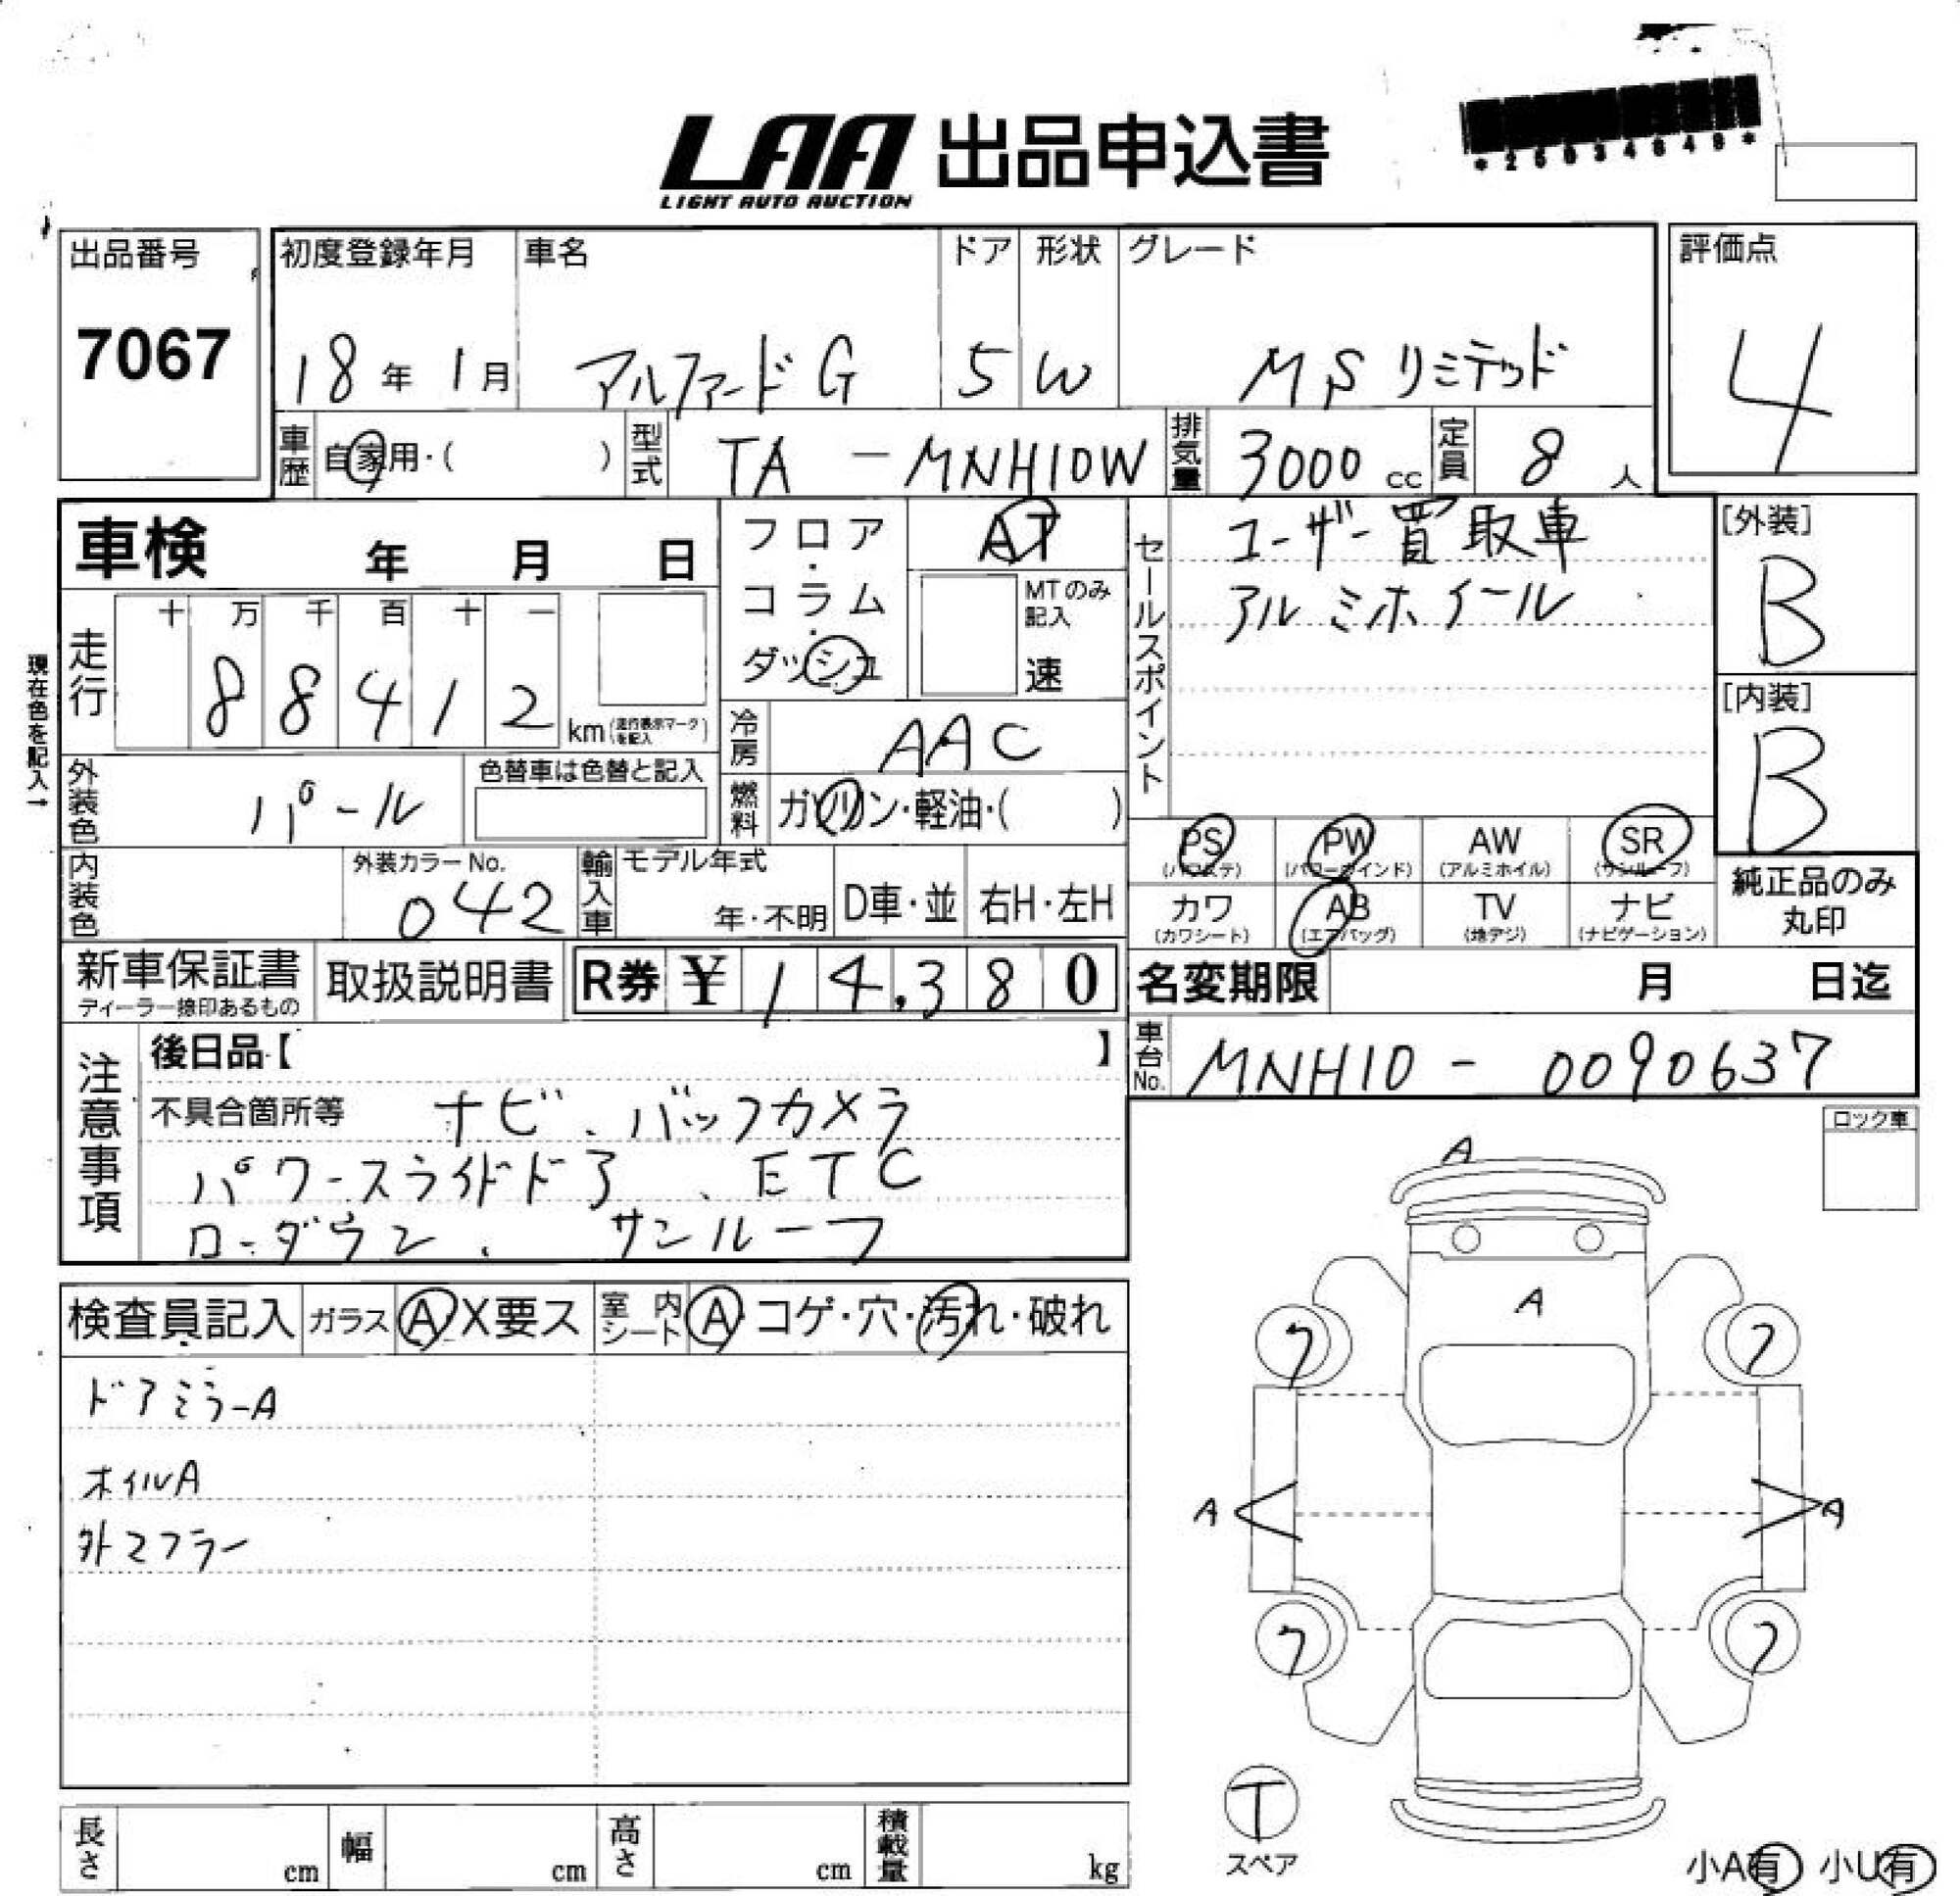 LAA 出品申込書
LIGHT AUTO AUCTION
出品番号 初度登録年月 車名 ドア 形状 グレード 評価点
7067 18年 1月 アルファード G 5 W MS リミテッド 4
車歴 自家用・( ) 型式 TA - MNH10W 排気量 3000 cc 定員 8 人
車検 年 月 日
フロア・コラム・ダッシュ
AT
MTのみ記入
速
セールスポイント
ユーザー買取車
アルミホイール
[外装]
B
[内装]
B
現在色を記入→
走行 十 万 千 百 十 一
8 8 4 1 2 km (走行表示マークを記入)
冷房 AAC
外装色 パール 色替車は色替と記入
燃料 ガソリン・軽油・( )
PS (パワステ) PW (パワーウインド) AW (アルミホイル) SR (サンルーフ)
カワ (カワシート) AB (エアバッグ) TV (地デジ) ナビ (ナビゲーション)
純正品のみ丸印
内装色 外装カラーNo. 042
輸入車 モデル年式 年・不明 D車・並 右H・左H
新車保証書 ディーラー捺印あるもの 取扱説明書 R券 ¥ 14,380
名変期限 月 日迄
車台No. MNH10 - 0090637
注意事項
後日品【 】
不具合箇所等 ナビ、バックカメラ
パワースライドドア、ETC
ローダウン、サンルーフ
ロック車
検査員記入 ガラス A X要ス 室内シート A・コゲ・穴・汚れ・破れ
ドアミラーA
ホイルA
外マフラー
A
A
7 7
A A
7 7
T
スペア
長さ cm 幅 cm 高さ cm 積載量 kg
小A有 小U有